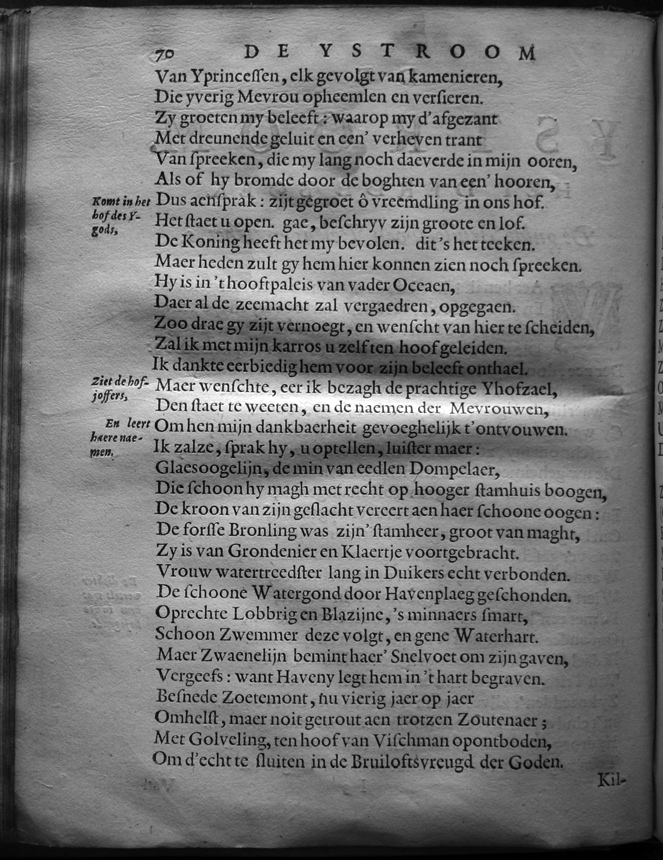 70 DE YSTROOM
Van Yprinceſſen, elk gevolgt van kamenieren,
Die yverig Mevrou opheemlen en verſieren.
Zy groeten my beleeft : waarop my d'afgezant
Met dreunende geluit en een' verheven trant
Van ſpreeken, die my lang noch daeverde in mijn ooren,
Als of hy bromde door de boghten van een' hooren,
Komt in het
hof des Y-
gods,
Dus aenſprak : zijt gegroet ô vreemdling in ons hof.
Het ſtaet u open. gae, beſchryv zijn groote en lof.
De Koning heeft het my bevolen. dit's het teeken.
Maer heden zult gy hem hier konnen zien noch ſpreeken.
Hy is in 't hooftpaleis van vader Oceaen,
Daer al de zeemacht zal vergaedren, opgegaen.
Zoo drae gy zijt vernoegt, en wenſcht van hier te ſcheiden,
Zal ik met mijn karros u zelf ten hoof geleiden.
Ik dankte eerbiedig hem voor zijn beleeft onthael.
Ziet de hof-
joffers,
Maer wenſchte, eer ik bezagh de prachtige Yhofzael,
Den ſtaet te weeten, en de naemen der Mevrouwen,
En leert
haere nae-
men.
Om hen mijn dankbaerheit gevoeghelijk t'ontvouwen.
Ik zalze, ſprak hy, u optellen, luiſter maer :
Glaesoogelijn, de min van eedlen Dompelaer,
Die ſchoon hy magh met recht op hooger ſtamhuis boogen,
De kroon van zijn geſlacht vereert aen haer ſchoone oogen :
De forſſe Bronling was zijn' ſtamheer, groot van maght,
Zy is van Grondenier en Klaertje voortgebracht.
Vrouw watertreedſter lang in Duikers echt verbonden.
De ſchoone Watergond door Havenplaeg geſchonden.
Oprechte Lobbrig en Blazijne, 's minnaers ſmart,
Schoon Zwemmer deze volgt, en gene Waterhart.
Maer Zwaenelijn bemint haer' Snelvoet om zijn gaven,
Vergeefs : want Haveny legt hem in 't hart begraven.
Beſnede Zoetemont, nu vierig jaer op jaer
Omhelſt, maer noit getrout aen trotzen Zoutenaer ;
Met Golveling, ten hoof van Viſchman opontboden,
Om d'echt te ſluiten in de Bruiloftsvreugd der Goden.
Kil-